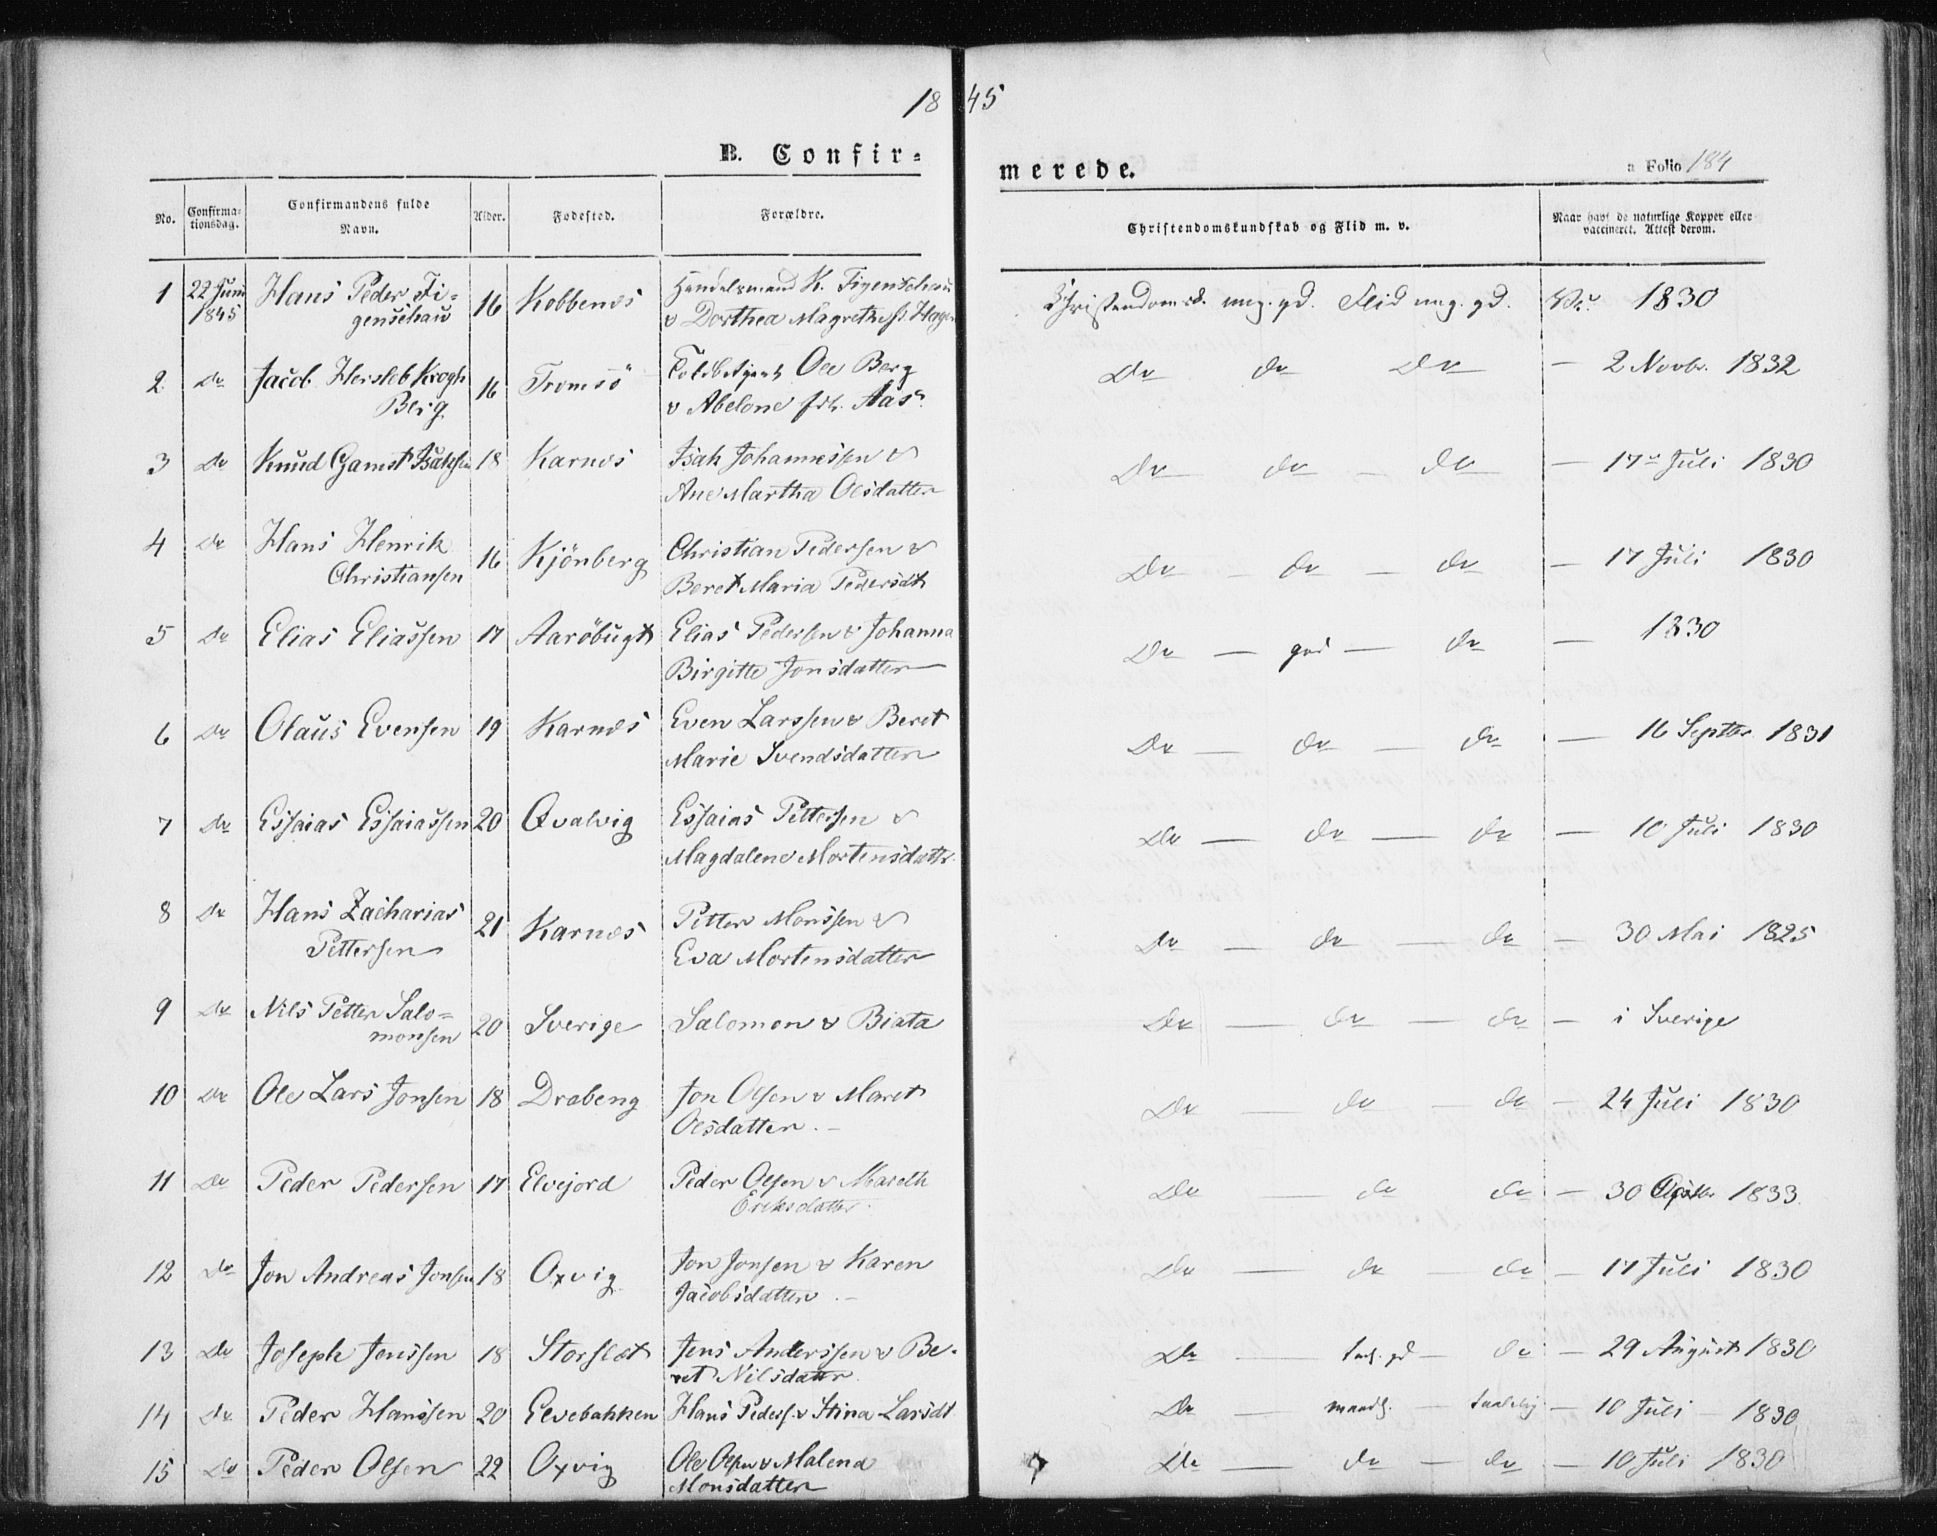 1845
B. Confirmerede.
a Folio 184
No. Confirmationsdag. Confirmandens fulde Navn. Alder. Fødested. Forældre. Christendomskundskab og Flid m. v. Naar havt de naturlige Kopper eller vaccineret. Attest derom.
1 22 Juni 1845 Hans Peder Fi= 16 Kobbenes Handelsmand K. Figenschau Christendomsk. meg. gd. Flid meg. gd. 1830
genschau v Dorthea Magrethe f. Hagen
2 Do Jacob Hersleb Krogh 16 Tromsö Ole Berg Do do Do — 2 Novbr. 1832
Berg v Abelone fdt. Aas
3 Do Knud Gamst Isaksen 18 Karnes Isak Johannessen v Do do — do — 17de Juli 1830
Ane Martha Olsdatter
4 Do Hans Henrik 16 Kjönberg Christian Pedersen v Do — do — do — 17 Juli 1830
Christiansen Beret Maria Pedersdt
5 Do Elias Eliassen 17 Aaröbugt Elias Pedersen v Johanna Do — god — do — 1830
Birgitte Jonsdatter
6 Do Olaus Evensen 19 Karnes Even Larssen v Beret Do — do — do — 16 Septbr 1831
Marie Svendsdatter
7 Do Essaias Essaiassen 20 Qvalvig Essaias Pettersen v Do — do — do — 10 Juli 1830
Magdalene Mortensdattr
8 Do Hans Zacharias 21 Karnes Petter Monssen v Do — do — do — 30 Mai 1825
Pettersen Eva Mortensdatter
9 Do Nils Petter Salo= 20 Sverige Salomon v Biata Do — do — do — i Sverige
monsen
10 Do Ole Lars Jonsen 18 Drabeng Jon Olsen v Maret Do — do — do — 24 Juli 1830
Olsdatter. —
11 Do Peder Pedersen 17 Elvejord Peder Olsen v Mareth Do — do do — 30 1833
Eriksdatter
12 Do Jon Andreas Jonsen 18 Oxvig Jon Jonsen v Karen Do — do — do — 17 Juli 1830
Jacobsdatter. —
13 Do Joseph Jenssen 18 Storslet Jens Anderssen v Be- Do — do — 29 August 1830
ret Nilsdatter
14 Do Peder Hanssen 20 Elvebakken Hans Peders. v Stina Larsdt Do — maadl. — 10 Juli — 1830
15 Do Peder Olsen 22 Oxvig Ole Olsen v Malena Do — do — do — 10 Juli 1830
Monsdatter